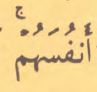 أَنفُسَهُمْ ۚ